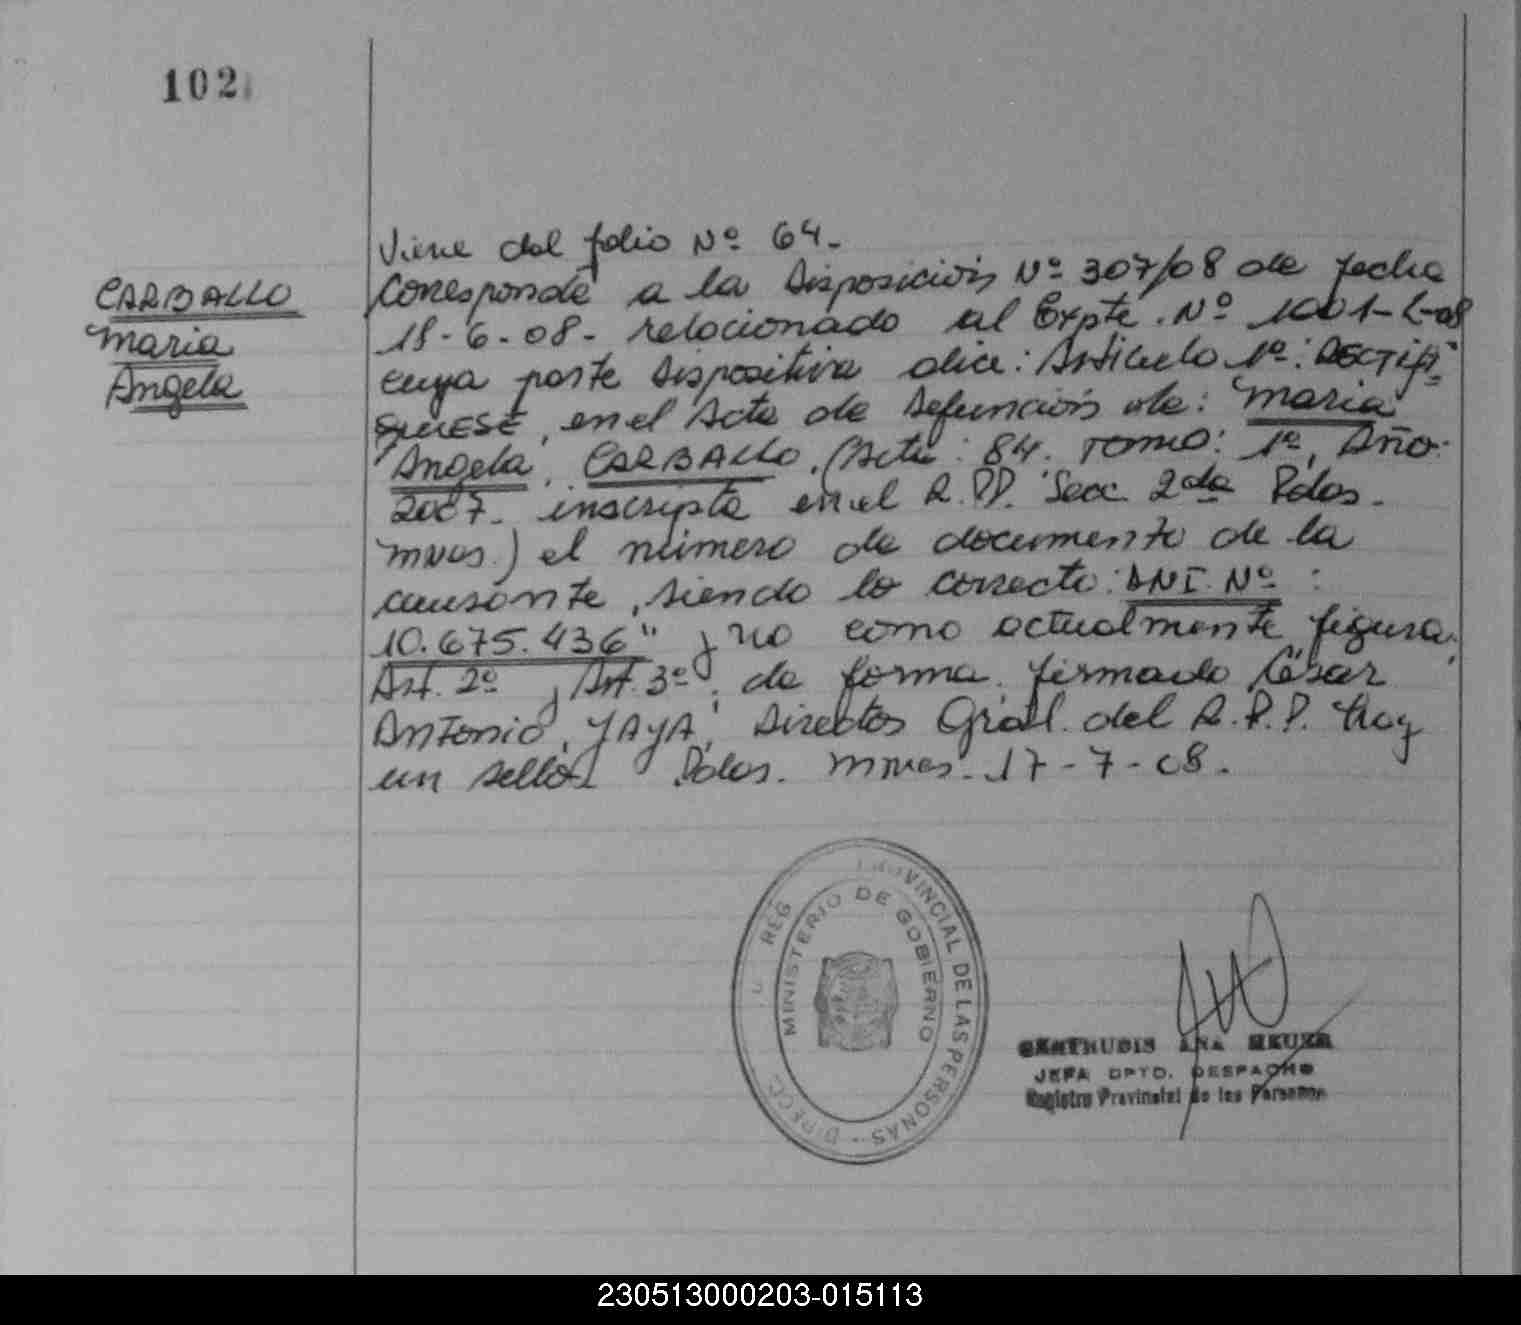 102
CARBALLO
Maria
Angela
Viene del folio Nº 64.-
Corresponde a la Disposición Nº 307/08 de fecha
18-6-08- relacionado al Expte. Nº 1001-L-08
cuya parte dispositiva dice: Artículo 1º: RECTIFI-
QUESE, en el Acta de Defunción de: "Maria
Angela CARBALLO. (Acta: 84. Tomo: 1º, Año:
2007. inscripta en el R.P.P. Secc 2da Pdas.-
Mnes.) el número de documento de la
causante, siendo lo correcto: DNI. Nº :
10.675.436" y no como actualmente figura.
Art. 2º y Art. 3º: de forma. firmado César
Antonio YAYA, Director Gral. del R.P.P. Hay
un sello. Pdas. Mnes. 17-7-08.
DIRECC. REG PROVINCIAL DE LAS PERSONAS -
MINISTERIO DE GOBIERNO
GERTRUDIS ANA
JEFA DPTO. DESPACHO
Registro Provincial de las Personas
230513000203-015113